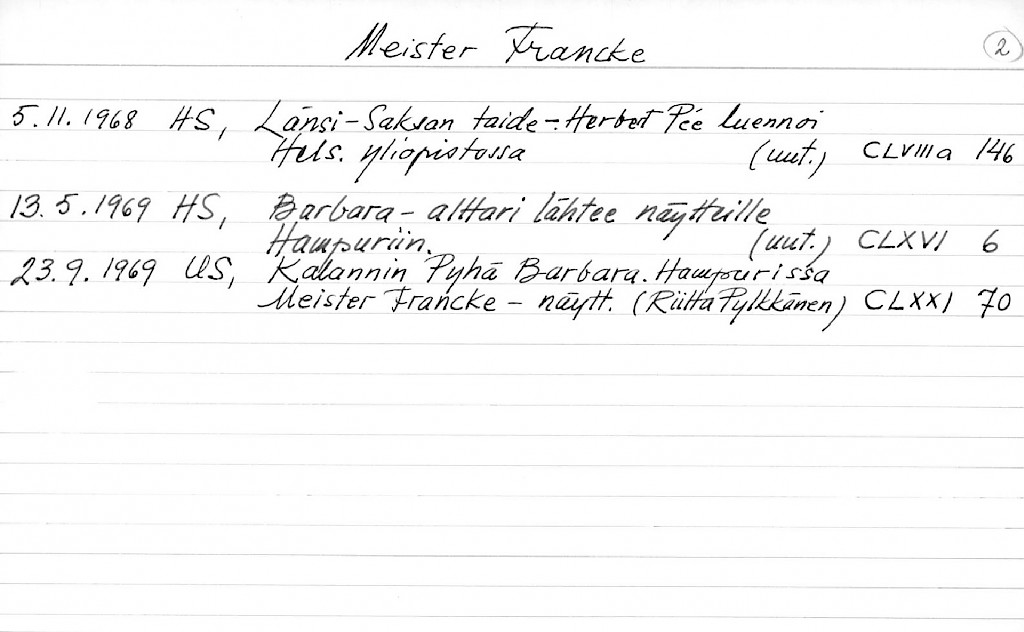 Meister Francke 2
5.11.1968 HS, Länsi-Saksan taide - Herbert Pée luennoi
Hels. yliopistossa (uut.) CLVIIIa 146
13.5.1969 HS, Barbara-alttari lähtee näytteille
Hampuriin. (uut.) CLXVI 6
23.9.1969 US, Kalannin Pyhä Barbara. Hampurissa
Meister Francke - näytt. (Riitta Pylkkänen) CLXXI 70